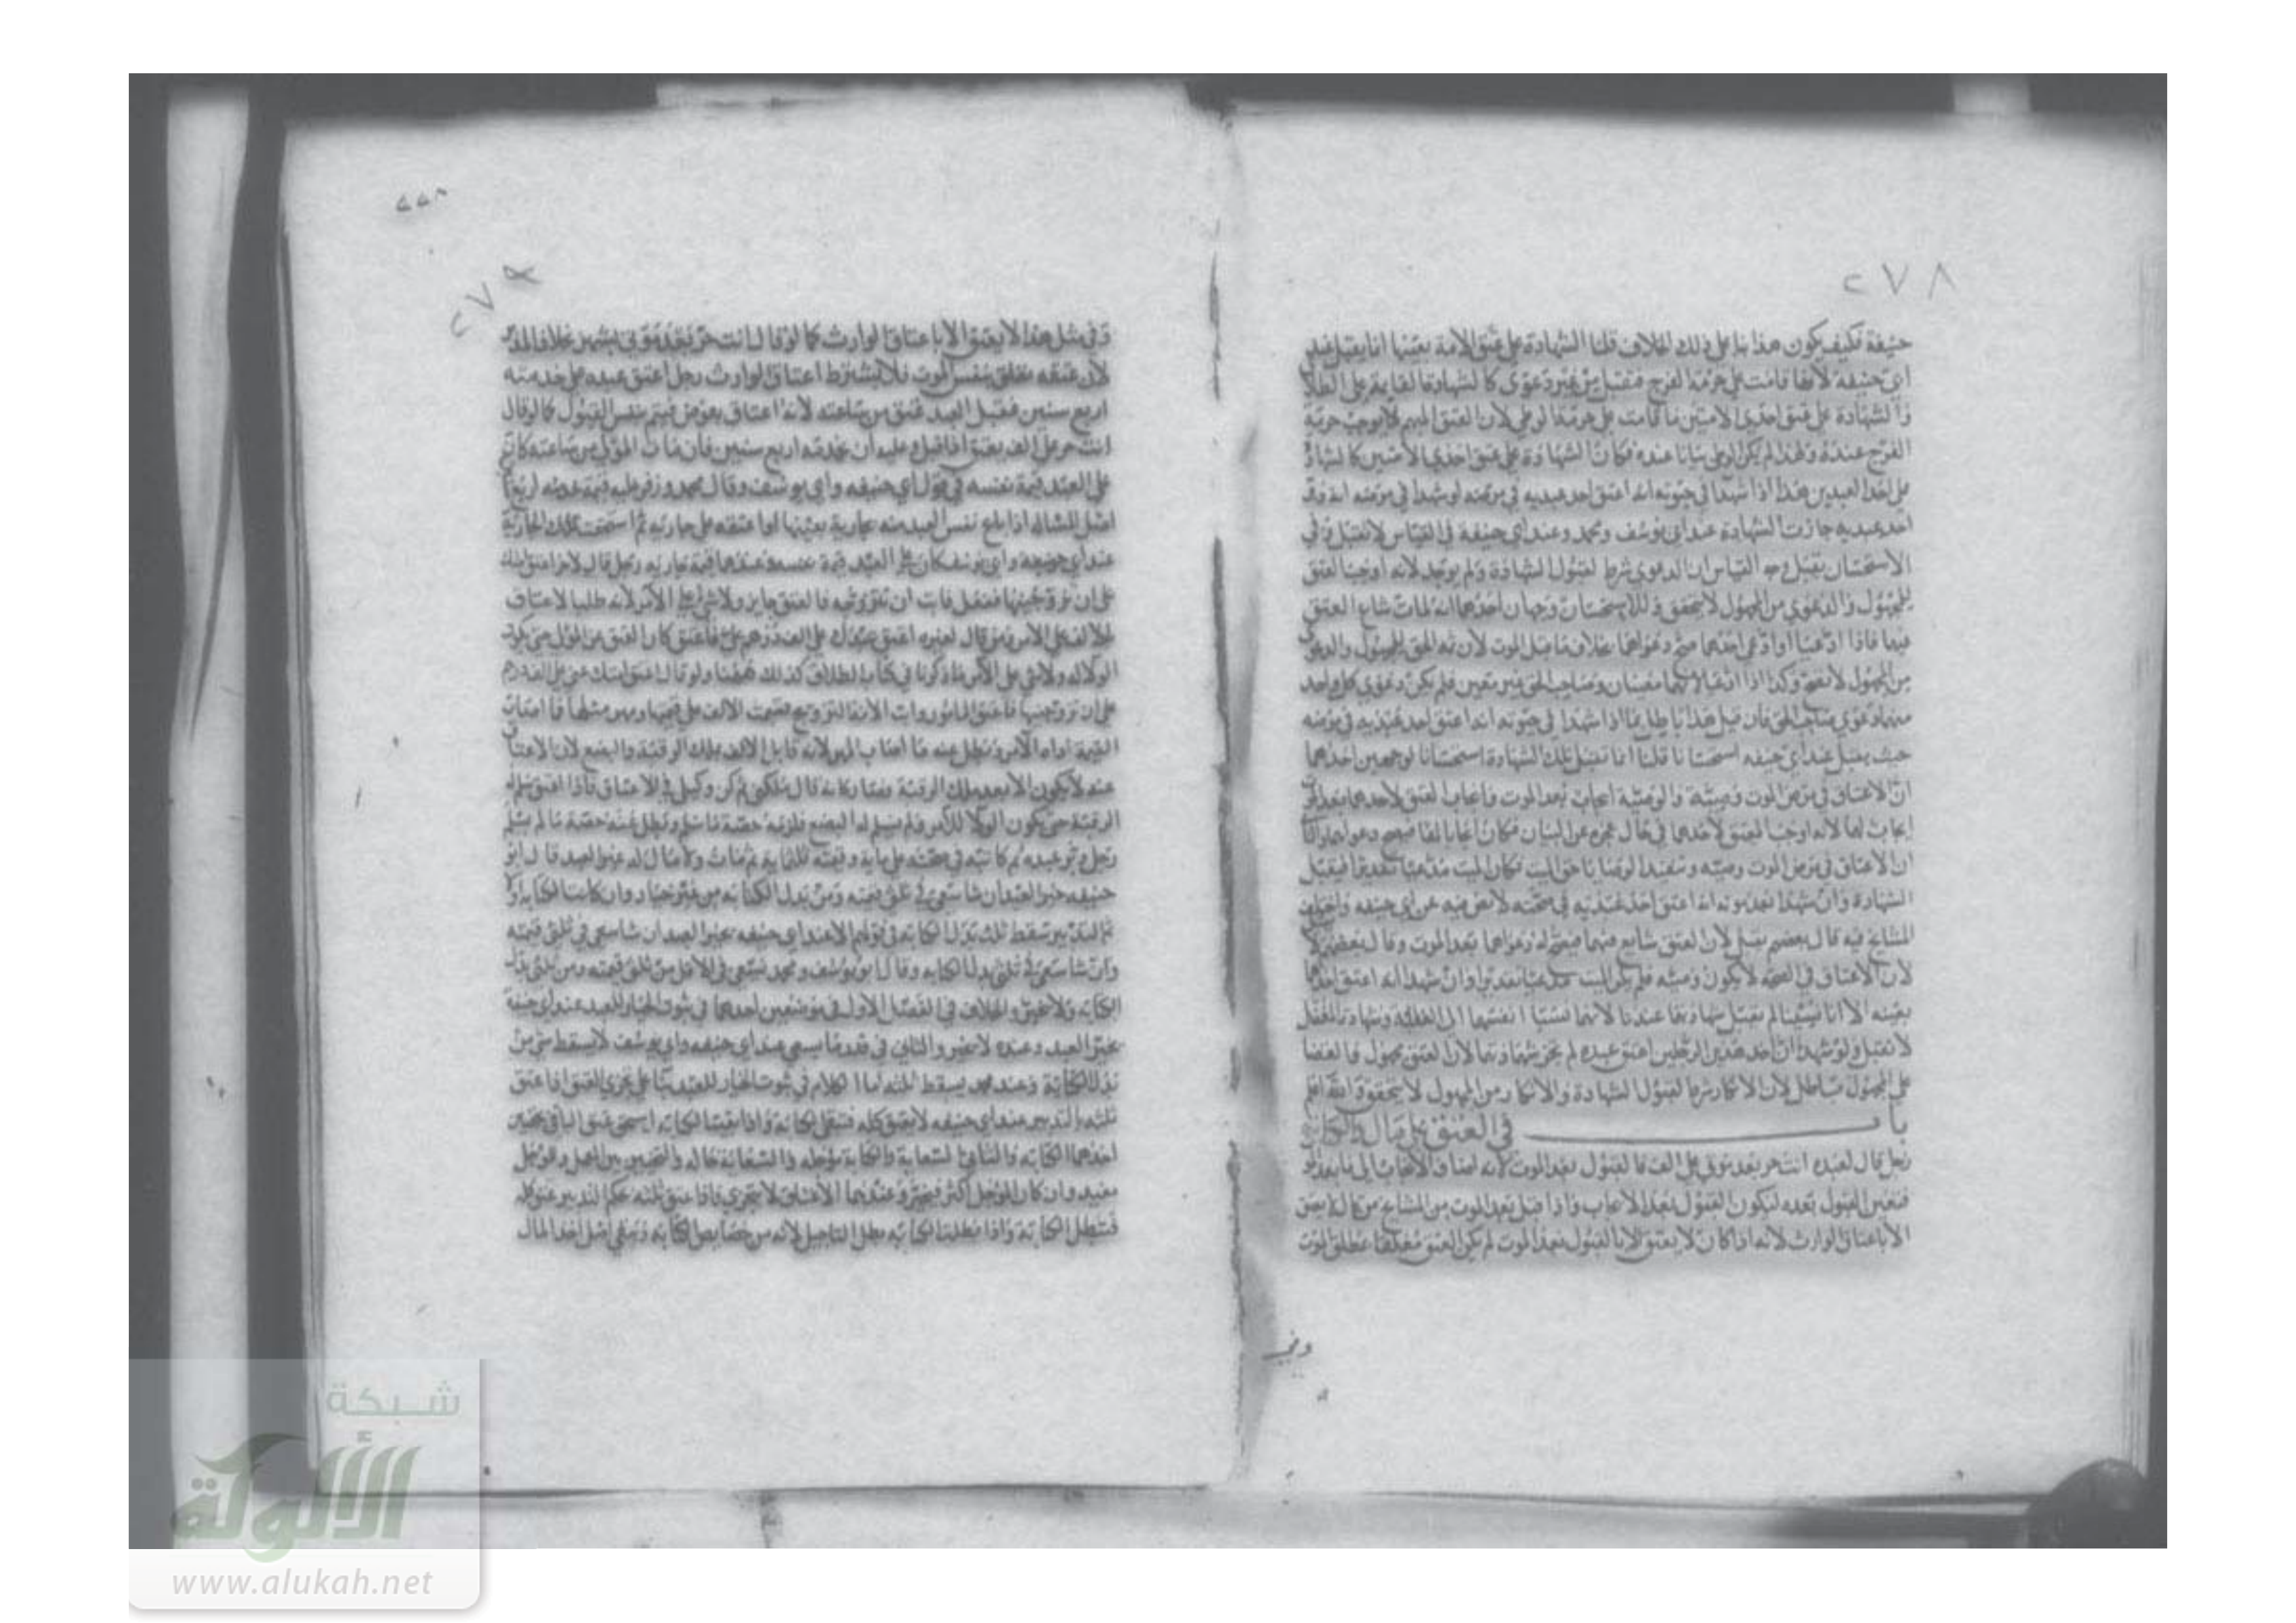 ٢٧٨
حنيفة فكيف يكون هذا بنا على ذلك الخلاف قلنا الشهادة على عتق الامة بعينها انما يقبل عند
ابي حنيفه لانها قامت على حرمة الفرج فتقبل من غير دعوى كالشهادة القايمة على الطلا
والشهادة على عتق احدى الامتين ما قامت على حرمة الوطي لان العتق المبهم لا يوجب حرمة
الفرج عنده ولهذا لم يكن الوطي بيانا عنده فكان الشهادة على عتق احدى الامتين كالشهاد
على احد العبدين هذا اذا شهدا في حيوته انه اعتق احد عبديه في مرضه او شهدا في مرضه انه
احد عبديه جازت الشهادة عند ابي يوسف ومحمد وعند ابي حنيفة في القياس لا تقبل وفي
الاستحسان يقبل وجه القياس ان الدعوى شرط لقبول الشهادة ولم يوجد لانه اوجب العتق
للمجهول والدعوى من المجهول لا يتحقق وللاستحسان وجهان احدهما انه لما مات شاع العتق
فيهما فاذا ادعيا او ادعى احدهما صح دعواهما بخلاف ما قبل الموت لان ثم الحق للمجهول والدعوى
من المجهول لا تصح وكذا اذا ادعيا لانهما معينان وصاحب الحق غير معين فلم يكن دعوى كل واحد
منهما دعوى صاحب الحق فان قيل هذا باطل بما اذا شهدا في حيوته انه اعتق احد عبديه في مرضه
حيث يقبل عند ابي حنيفه استحسانا قلنا انما تقبل تلك الشهادة استحسانا لوجهين احدهما
ان الاعتاق في مرض الموت وصية والوصية ايجاب بعد الموت وايجاب العتق لاحدهما بعد الموت
ايجاب لهما لانه اوجب العتق لاحدهما في حال عجزه عن البيان فكان ايجابا لهما فيصح دعواهما والثا
ان الاعتاق في مرض الموت وصيه وتنفيذ الوصايا حق الميت فكان الميت مدعيا تقديرا فيقبل
الشهادة وان شهدا بعد موته انه اعتق احد عبديه في صحته لا نص فيه عن ابي حنيفه واختلف
المشايخ فيه قال بعضهم تقبل لان العتق شايع فيهما فيصح دعواهما بعد الموت وقال بعضهم لا
لان الاعتاق في الصحة لا يكون وصيه فلم يكن الميت مدعيا تقديرا وان شهدا انه اعتق احدهما
بعينه الا انا نسيناه لم تقبل شهادتهما عندنا لانهما نسبا انفسهما الى الغفلة وشهادة المغفل
لا تقبل ولو شهدا ان احد هذين الرجلين اعتق عبده لم تجز شهادتهما لان العتق مجهول فالقضا
على المجهول باطل لان الانكار شرط لقبول الشهادة والانكار من المجهول لا يتحقق والله اعلم
باب في العتق على مال والكتابة
رجل قال لعبده انت حر بعد موتي على الف فالقبول بعد الموت لانه اضاف الايجاب الى ما بعد الموت
فتعين القبول بعده ليكون القبول بعد الايجاب واذا قبل بعد الموت من المشايخ من قال لا يعتق
الا باعتاق الوارث لانه اذا كان لا يعتق الا بالقبول بعد الموت لم يكن العتق معلقا بمطلق الموت
وفي
٢٧٩
وفي مثل هذا لا يعتق الا باعتاق الوارث كما لو قال انت حر بعد موتي بشهر بخلاف المدبر
لان عتقه تعلق بنفس الموت فلا يشترط اعتاق الوارث رجل اعتق عبده على خدمته
اربع سنين فقبل العبد فعتق من ساعته لانه اعتاق بعوض فيتم بنفس القبول كما لو قال
انت حر على الف يعتق اذا قبل وعليه ان يخدمه اربع سنين فان مات المولى من ساعته كانت
على العبد قيمة نفسه في قول ابي حنيفه وابي يوسف وقال محمد وزفر عليه قيمة خدمته اربع
اصل المسالة اذا باع نفس العبد منه بجارية بعينها او اعتقه على جاريه ثم استحقت تلك الجارية
عند ابي حنيفة وابي يوسف كان على العبد قيمة نفسه وعندهما قيمة جاريه رجل قال لاخر اعتق امتك
على ان تزوجنيها ففعل فابت ان تتزوجه فالعتق جايز ولا شي على الامر لانه طلب الاعتاق
بالالف على الامر من قال لغيره اعتق عبدك على الف درهم علي فاعتق كان العتق عن المولى حتى يكون
الولا له ولا شي على الامر لما ذكرنا في كتاب الطلاق كذلك ههنا ولو قال اعتق امتك عني على الف درهم
على ان تزوجنيها فاعتق المامور وابت الامة التزويج قسمت الالف على قيمتها ومهر مثلها فما اصاب
القيمة اداه الامر وبطل عنه ما اصاب المهر لانه قابل الالف بملك الرقبة والبضع لان الاعتاق
عنه لا يكون الا بعد ملك الرقبة فصار كانه قال ملكني ثم كن وكيلي في الاعتاق فاذا اعتق سلم له
الرقبة حتى يكون الولا للامر ولم يسلم له البضع فلزمه حصة ما سلم وبطل عنه حصة ما لم يسلم
رجل دبر عبده ثم كاتبه في صحته على ماية وقيمته ثلثماية ثم مات ولا مال له غير العبد قال ابو
حنيفه خير العبد ان شا سعى في ثلثي قيمته ومن بدل الكتابه من غير خيار وان كانت الكتابه اولا
ثم التدبير سقط ثلث بدل الكتابة في قولهم الا عند ابي حنيفه يخير العبد ان شا سعى في ثلثي قيمته
وان شا سعى في ثلثي بدل الكتابه وقال ابو يوسف ومحمد يسعى في الاقل من ثلثي قيمته ومن ثلثي بدل
الكتابة ولا تخيير والخلاف في الفصل الاول في موضعين احدهما في ثبوت الخيار للعبد عند ابي حنيفة
يخير العبد وعنده لا يخير والثاني في قدر ما يسعى عند ابي حنيفه وابي يوسف لا يسقط شي من
بدل الكتابة وعند محمد يسقط ثلثه اما الكلام في ثبوت الخيار للعبد بنا على تجزي العتق اذا عتق
ثلثه بالتدبير عند ابي حنيفه لا يعتق كله فتبقى الكتابة واذا بقيت الكتابه استحق عتق الباقي بجهتين
احدهما الكتابه والثاني السعاية والكتابة مؤجله والسعاية حاله والتخيير بين المعجل والمؤجل
مفيد وان كان المؤجل اكثر فيخير وعندهما الاعتاق لا يتجزى فاذا عتق ثلثه بحكم التدبير عتق كله
فتبطل الكتابة واذا بطلت الكتابه بطل التاجيل لانه من خصايص الكتابه وتبقى اصل احد المال
شبكة
الألوكة
www.alukah.net